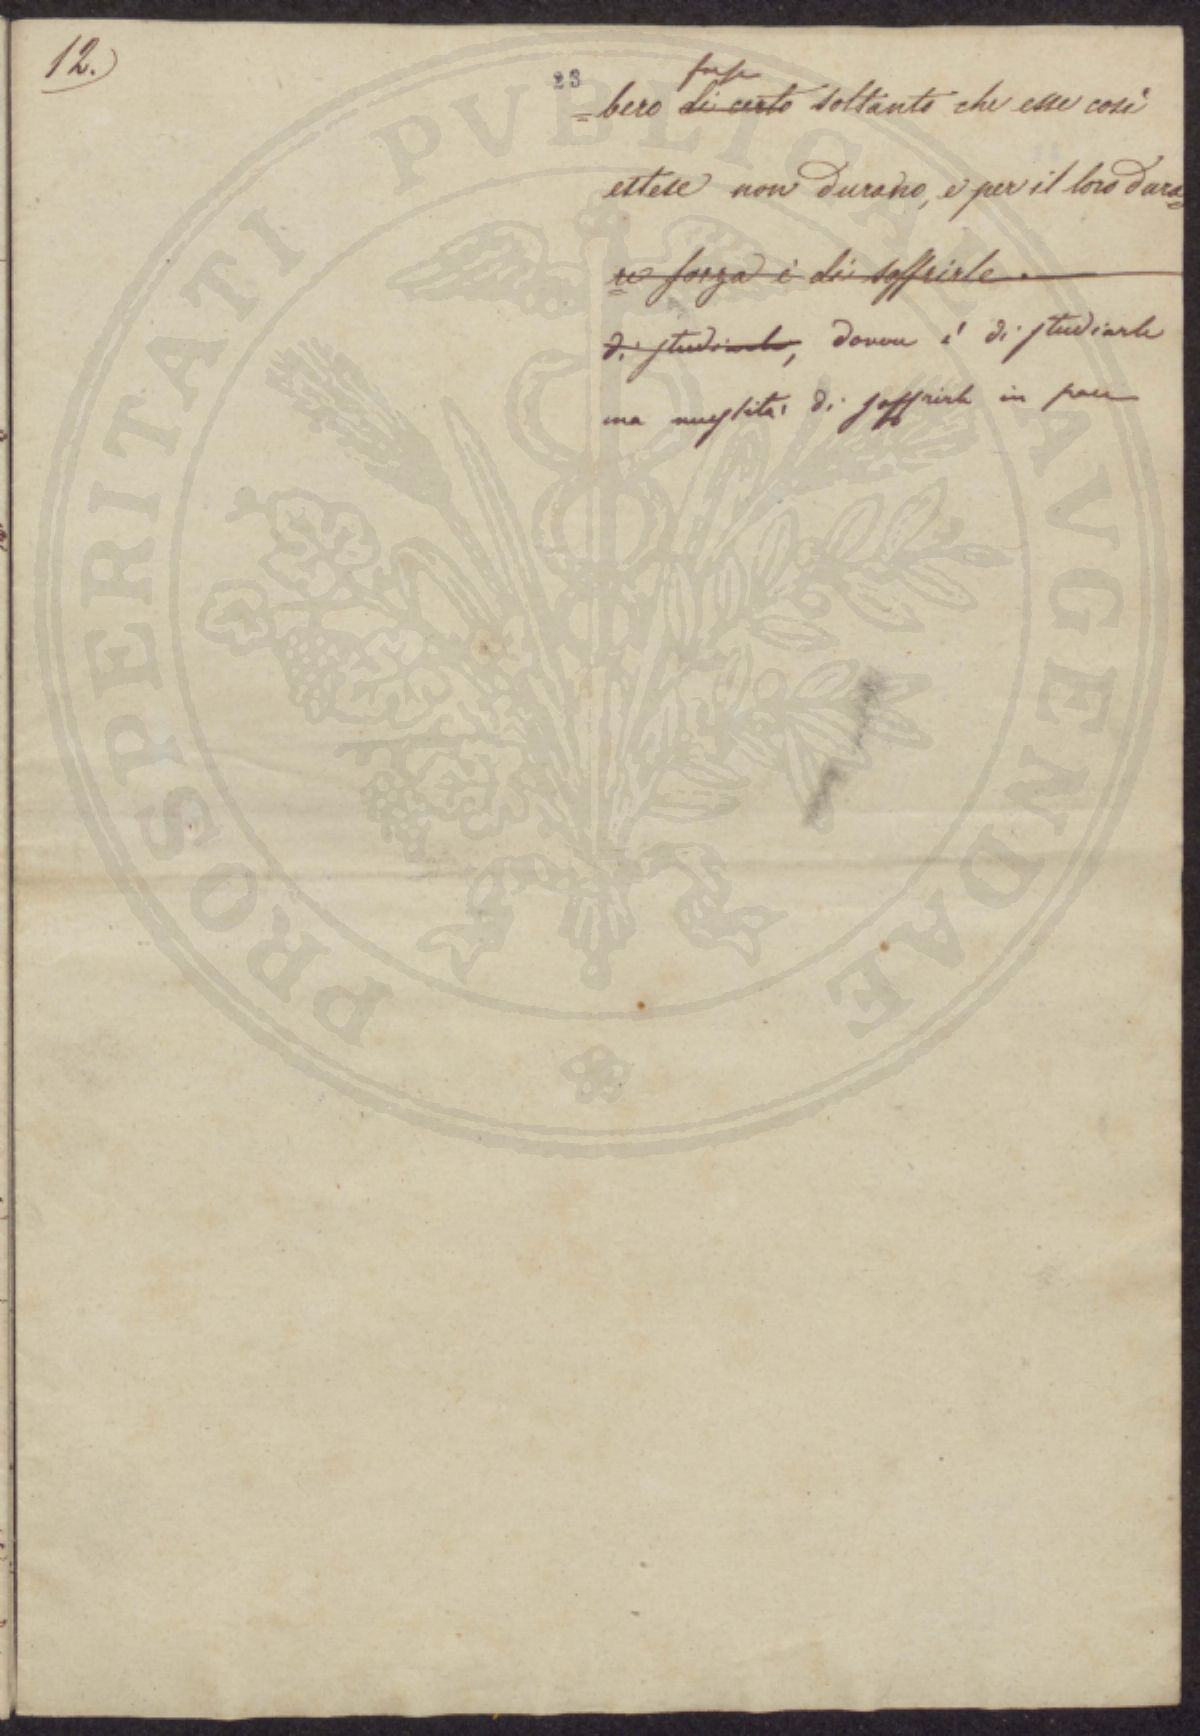 12.
23
forse
=bero di certo soltanto che esse così
estese non durano, e per il loro dura=
=re forza è di soffrirle.
di studiarle, dovere è di studiarle
ma di soffrirle in pace
PROSPERITATI PVBLICAE AVGENDAE